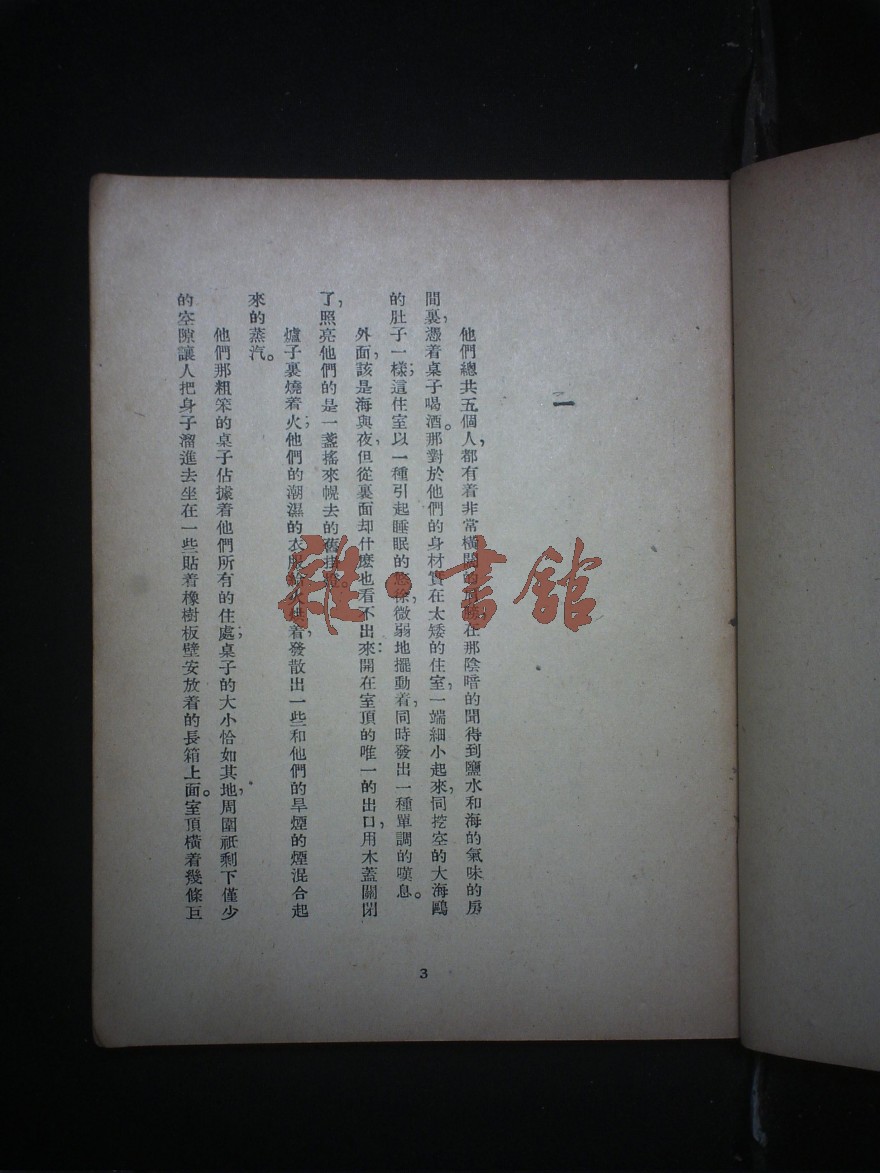 一
他們總共五個人，都有着非常橫闊的肩膀，在那陰暗的聞得到鹽水和海的氣味的房
間裏，憑着桌子喝酒。那對於他們的身材實在太矮的住室，一端細小起來，同挖空的大海鷗
的肚子一樣；這住室以一種引起睡眠的徐微弱地擺動着，同時發出一種單調的嘆息。
外面，該是海與夜，但從裏面却什麽也看不出來：開在室頂的唯一的出口，用木蓋關閉
了，照亮他們的是一盞搖來幌去的舊掛燈。
爐子裏燒着火；他們的潮濕的衣服給火烘着，發散出一些和他們的旱煙的煙混合起
來的蒸汽。
他們那粗笨的桌子佔據着他們所有的住處；桌子的大小恰如其地，周圍祇剩下僅少
的空隙讓人把身子溜進去坐在一些貼着橡樹板壁安放着的長箱上面。室頂橫着幾條巨
3
雜·書館